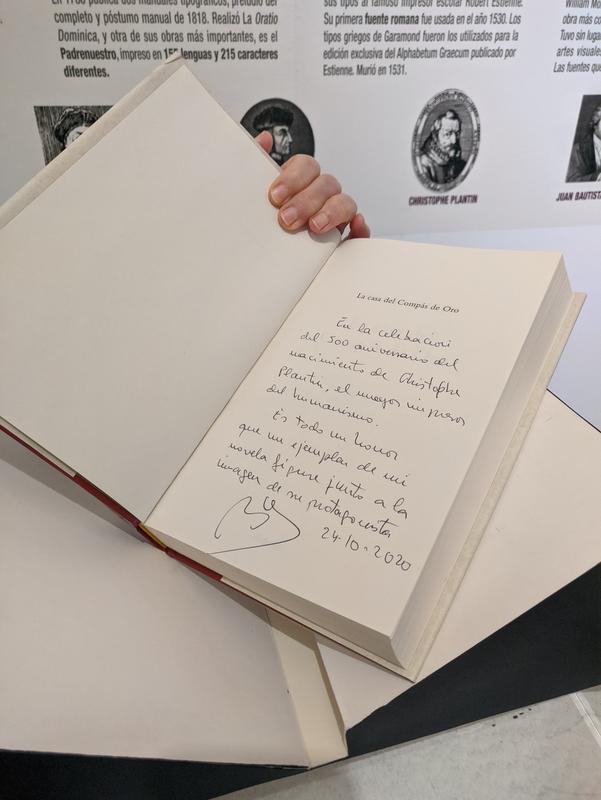 completo y póstumo manual de 1818. Realizó La Oratio
Dominica, y otra de sus obras más importantes, es el
Padrenuestro, impreso en 155 lenguas y 215 caracteres
diferentes.
sus tipos al famoso impresor escolar Robert Estienne.
Su primera fuente romana fue usada en el año 1530. Los
tipos griegos de Garamond fueron los utilizados para la
edición exclusiva del Alphabetum Graecum publicado por
Estienne. Murió en 1531.
William Mo
obra más co
Tuvo sin lugar
artes visuales
Las fuentes que
CHRISTOPHE PLANTIN
JUAN BAUTIST
La casa del Compás de Oro
En la celebración
del 500 aniversario del
nacimiento de Christophe
Plantin, el mayor impresor
del humanismo.
Es todo un honor
que un ejemplar de mi
novela figure junto a la
imagen de su protagonista
24-10-2020